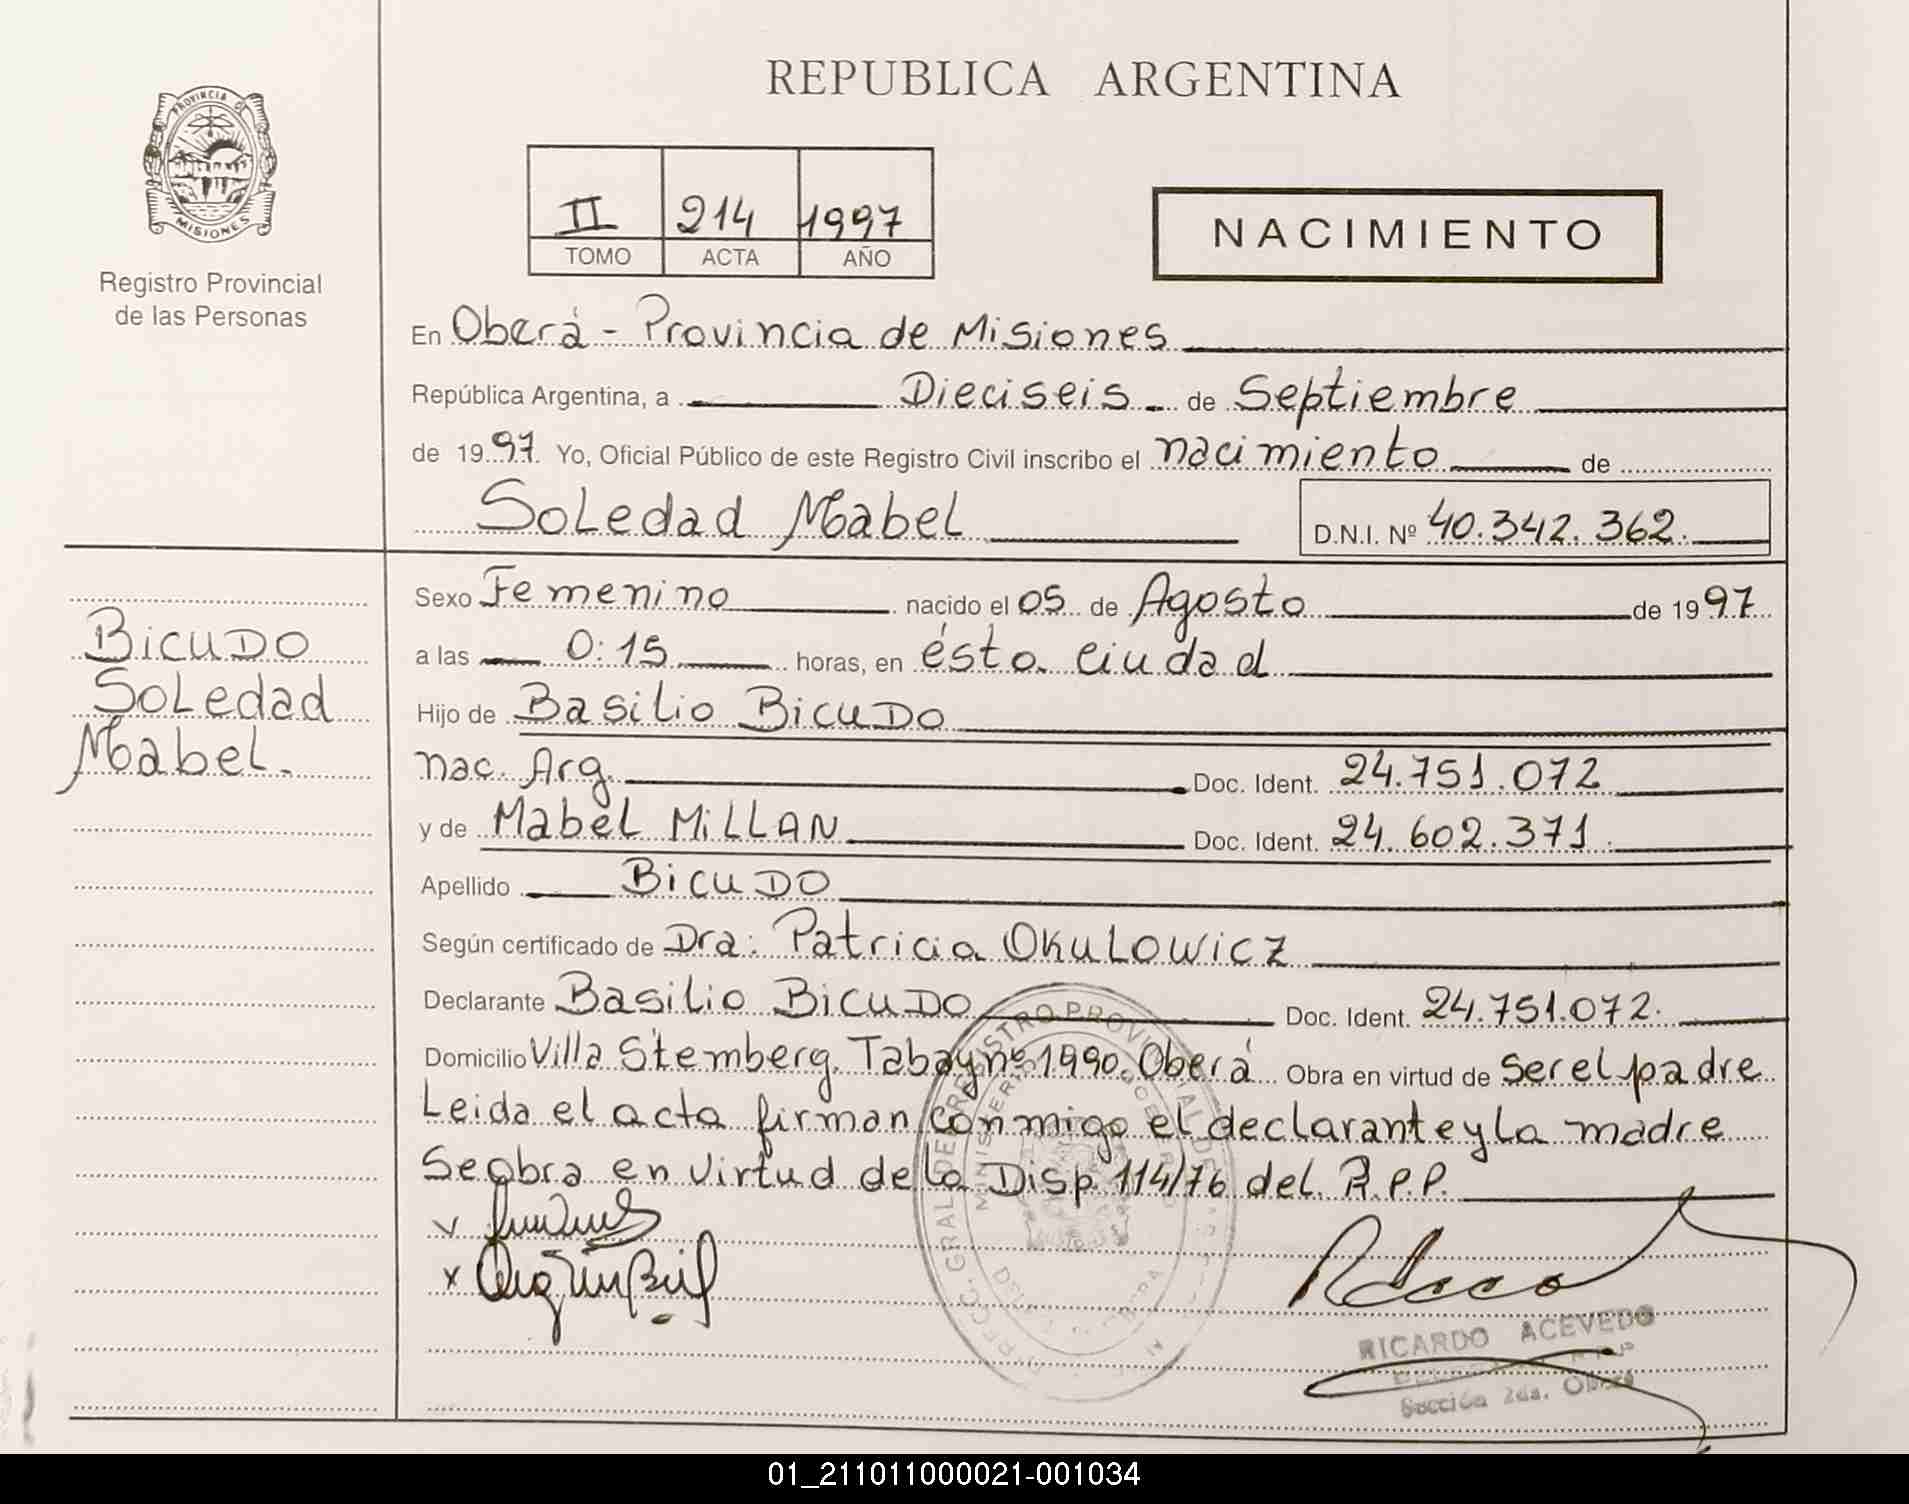 REPUBLICA ARGENTINA
PROVINCIA DE
MISIONES
Registro Provincial
de las Personas
II 214 1997
TOMO ACTA AÑO
NACIMIENTO
En Oberá - Provincia de Misiones
República Argentina, a Dieciseis de Septiembre
de 1997. Yo, Oficial Público de este Registro Civil inscribo el nacimiento de
Soledad Mabel D.N.I. Nº 40.342.362.
Bicudo
Soledad
Mabel.
Sexo Femenino nacido el 05 de Agosto de 1997
a las 0:15 horas, en ésta ciudad
Hijo de Basilio Bicudo
nac. Arg. Doc. Ident. 24.751.072
y de Mabel Millan Doc. Ident. 24.602.371.
Apellido Bicudo
Según certificado de Dra: Patricia Okulowicz
Declarante Basilio Bicudo Doc. Ident. 24.751.072.
Domicilio Villa Stemberg. Tabay nº 1990. Oberá Obra en virtud de ser el padre
Leida el acta firman conmigo el declarante y la madre
Se obra en virtud de la Disp. 114/76 del R.P.P.
RICARDO ACEVEDO
Sección 2da. Oberá
01_211011000021-001034